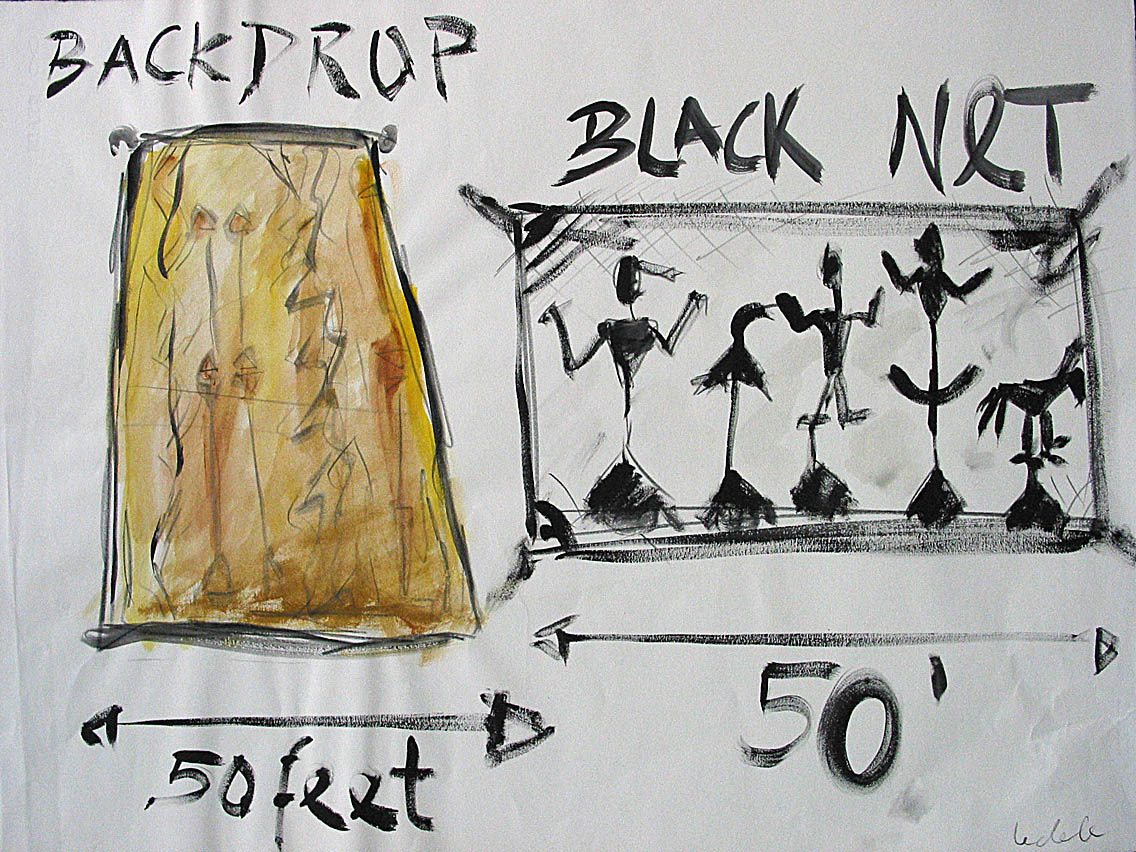 BACKDROP
BLACK NeT
50 feet
50'